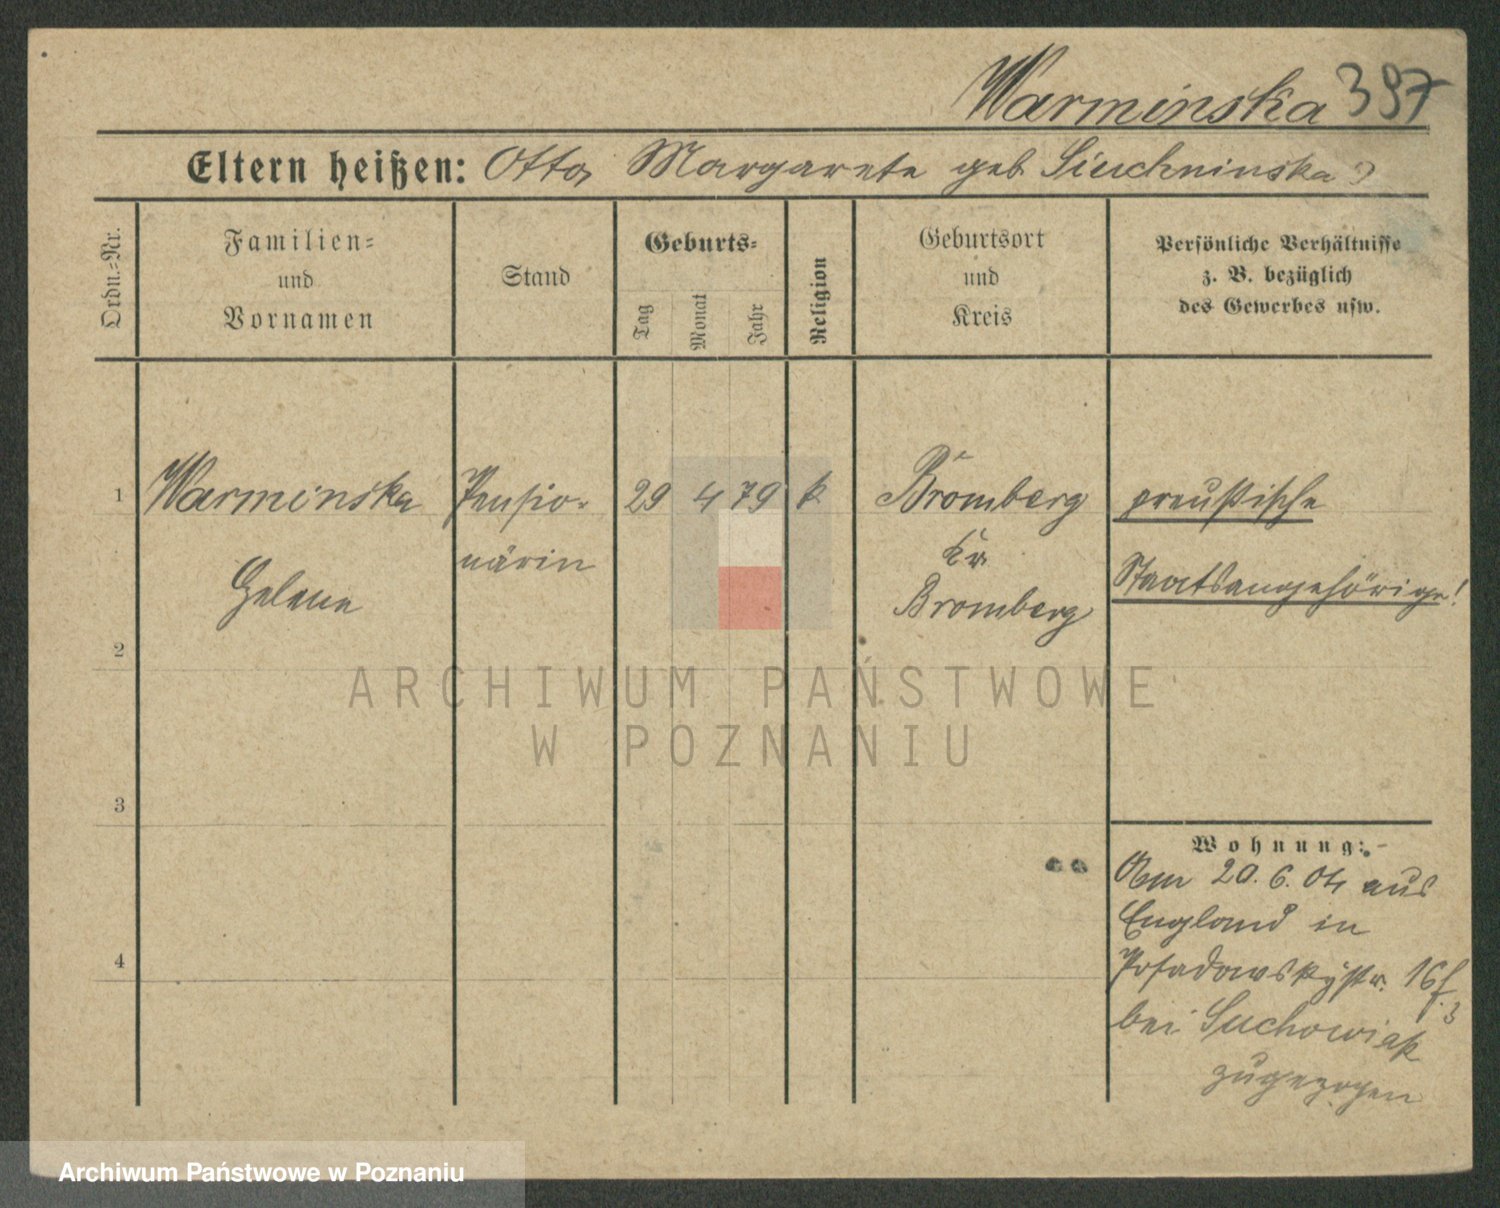 Warminska 397
Eltern heißen: Otto, Margarete geb
Ordn.=Nr.
Familien=
und
Vornamen
Stand
Geburts=
Tag
Monat
Jahr
Religion
Geburtsort
und
Kreis
Persönliche Verhältnisse
z. B. bezüglich
des Gewerbes usw.
1 Warminska Pensio- 29 4 79 k Bromberg preußische
närin Kr. Staatsangehörige!
Helene Bromberg
2
ARCHIWUM PAŃSTWOWE
W POZNANIU
3
Wohnung:
Am 20. 6. 04 aus
England in
4 Posadowskystr. 16
bei Suchowiak
zugezogen
Archiwum Państwowe w Poznaniu